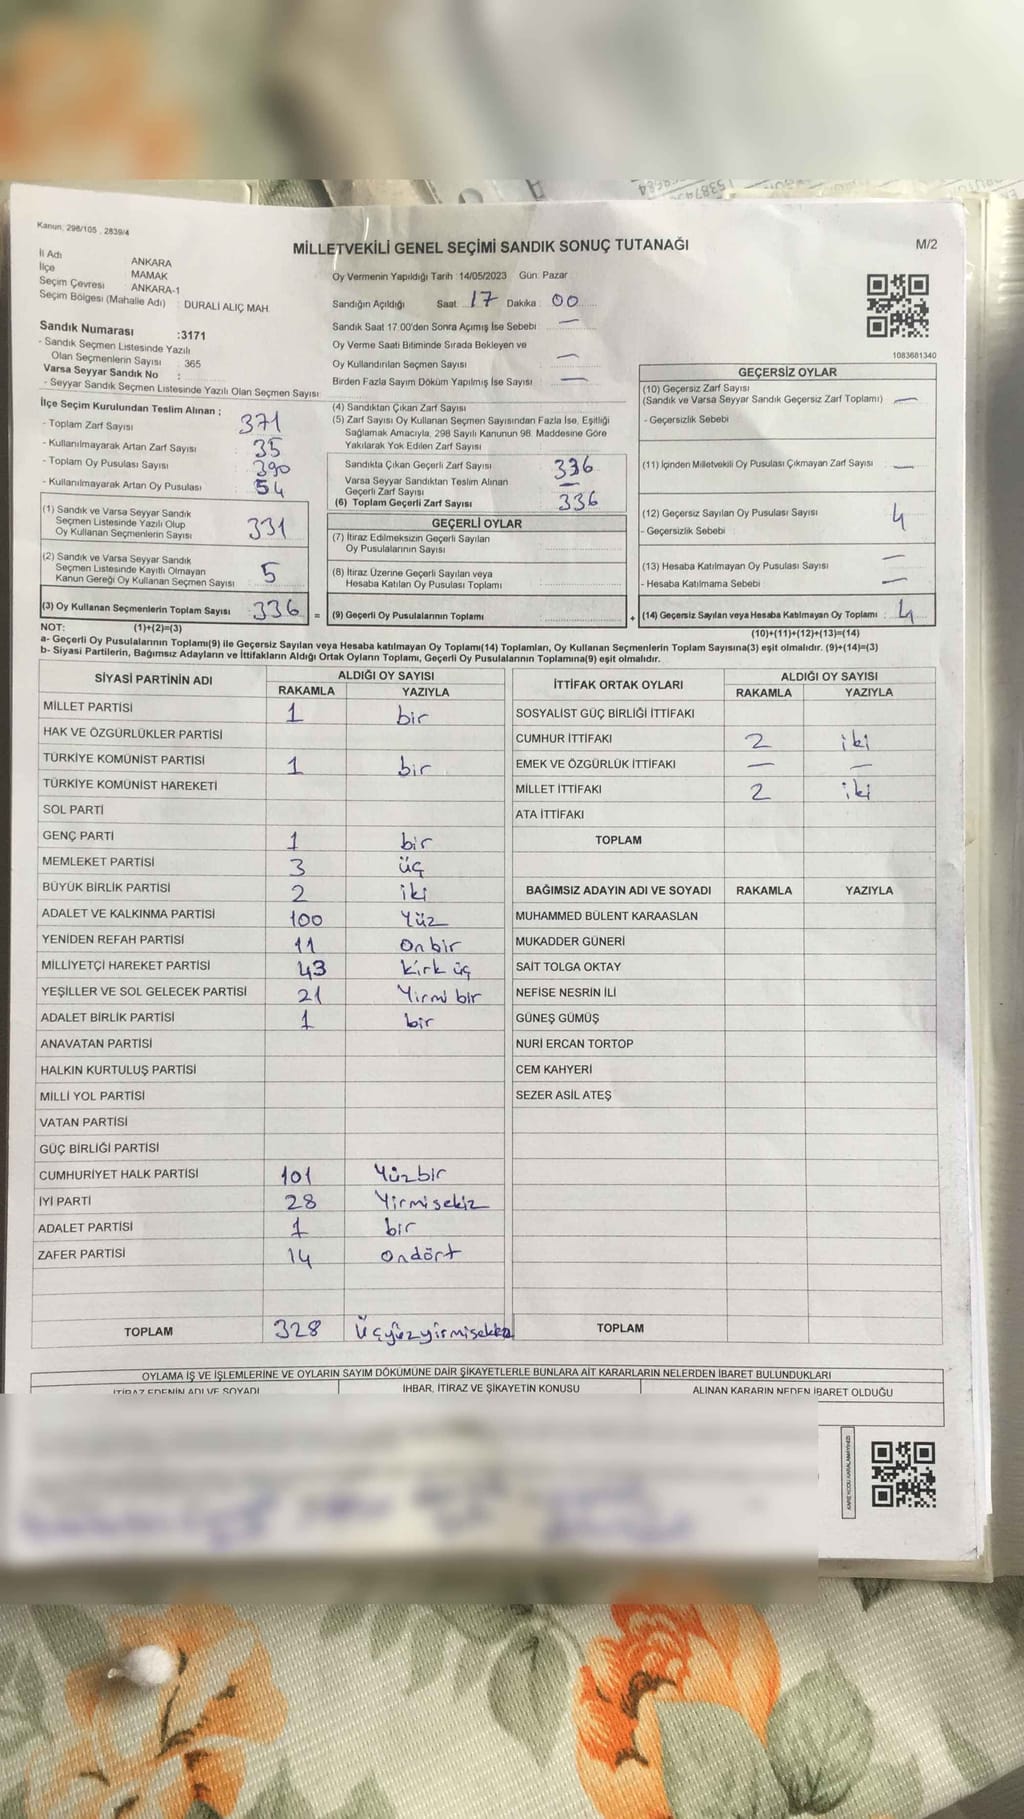 Kanun: 298/105 , 2839/4
MİLLETVEKİLİ GENEL SEÇİMİ SANDIK SONUÇ TUTANAĞI
M/2
İl Adı ANKARA
İlçe MAMAK
Seçim Çevresi ANKARA-1
Seçim Bölgesi (Mahalle Adı) : DURALİ ALIÇ MAH.
Sandık Numarası :3171
- Sandık Seçmen Listesinde Yazılı
Olan Seçmenlerin Sayısı : 365
Varsa Seyyar Sandık No :
- Seyyar Sandık Seçmen Listesinde Yazılı Olan Seçmen Sayısı
Oy Vermenin Yapıldığı Tarih :14/05/2023 Gün: Pazar
Sandığın Açıldığı Saat: 17 Dakika : 00
Sandık Saat 17.00'den Sonra Açımış İse Sebebi : —
Oy Verme Saati Bitiminde Sırada Bekleyen ve
Oy Kullandırılan Seçmen Sayısı —
Birden Fazla Sayım Döküm Yapılmış İse Sayısı : —
1083681340
İlçe Seçim Kurulundan Teslim Alınan ;
- Toplam Zarf Sayısı : 371
- Kullanılmayarak Artan Zarf Sayısı : 35
- Toplam Oy Pusulası Sayısı : 390
- Kullanılmayarak Artan Oy Pusulası : 54
(1) Sandık ve Varsa Seyyar Sandık
Seçmen Listesinde Yazılı Olup
Oy Kullanan Seçmenlerin Sayısı 331
(2) Sandık ve Varsa Seyyar Sandık
Seçmen Listesinde Kayıtlı Olmayan
Kanun Gereği Oy Kullanan Seçmen Sayısı 5
(3) Oy Kullanan Seçmenlerin Toplam Sayısı 336 =
(4) Sandıktan Çıkan Zarf Sayısı
(5) Zarf Sayısı Oy Kullanan Seçmen Sayısından Fazla İse, Eşitliği
Sağlamak Amacıyla, 298 Sayılı Kanunun 98. Maddesine Göre
Yakılarak Yok Edilen Zarf Sayısı
Sandıkta Çıkan Geçerli Zarf Sayısı 336
Varsa Seyyar Sandıktan Teslim Alınan
Geçerli Zarf Sayısı —
(6) Toplam Geçerli Zarf Sayısı 336
GEÇERLİ OYLAR
(7) İtiraz Edilmeksizin Geçerli Sayılan
Oy Pusulalarının Sayısı
(8) İtiraz Üzerine Geçerli Sayılan veya
Hesaba Katılan Oy Pusulası Toplamı
(9) Geçerli Oy Pusulalarının Toplamı +
GEÇERSİZ OYLAR
(10) Geçersiz Zarf Sayısı
(Sandık ve Varsa Seyyar Sandık Geçersiz Zarf Toplamı) —
- Geçersizlik Sebebi
(11) İçinden Milletvekili Oy Pusulası Çıkmayan Zarf Sayısı —
(12) Geçersiz Sayılan Oy Pusulası Sayısı 4
- Geçersizlik Sebebi
(13) Hesaba Katılmayan Oy Pusulası Sayısı —
- Hesaba Katılmama Sebebi —
(14) Geçersiz Sayılan veya Hesaba Katılmayan Oy Toplamı : 4
NOT: (1)+(2)=(3)
(10)+(11)+(12)+(13)=(14)
a- Geçerli Oy Pusulalarının Toplamı(9) ile Geçersiz Sayılan veya Hesaba katılmayan Oy Toplamı(14) Toplamları, Oy Kullanan Seçmenlerin Toplam Sayısına(3) eşit olmalıdır. (9)+(14)=(3)
b- Siyasi Partilerin, Bağımsız Adayların ve İttifakların Aldığı Ortak Oyların Toplamı, Geçerli Oy Pusulalarının Toplamına(9) eşit olmalıdır.
SİYASİ PARTİNİN ADI ALDIĞI OY SAYISI
RAKAMLA YAZIYLA
MİLLET PARTİSİ 1 bir
HAK VE ÖZGÜRLÜKLER PARTİSİ
TÜRKİYE KOMÜNİST PARTİSİ 1 bir
TÜRKİYE KOMÜNİST HAREKETİ
SOL PARTİ
GENÇ PARTİ 1 bir
MEMLEKET PARTİSİ 3 üç
BÜYÜK BİRLİK PARTİSİ 2 iki
ADALET VE KALKINMA PARTİSİ 100 Yüz
YENİDEN REFAH PARTİSİ 11 On bir
MİLLİYETÇİ HAREKET PARTİSİ 43 Kırk üç
YEŞİLLER VE SOL GELECEK PARTİSİ 21 Yirmi bir
ADALET BİRLİK PARTİSİ 1 bir
ANAVATAN PARTİSİ
HALKIN KURTULUŞ PARTİSİ
MİLLİ YOL PARTİSİ
VATAN PARTİSİ
GÜÇ BİRLİĞİ PARTİSİ
CUMHURİYET HALK PARTİSİ 101 Yüzbir
İYİ PARTİ 28 Yirmisekiz
ADALET PARTİSİ 1 bir
ZAFER PARTİSİ 14 Ondört
TOPLAM 328 Üçyüzyirmisekiz
İTTİFAK ORTAK OYLARI ALDIĞI OY SAYISI
RAKAMLA YAZIYLA
SOSYALİST GÜÇ BİRLİĞİ İTTİFAKI
CUMHUR İTTİFAKI 2 iki
EMEK VE ÖZGÜRLÜK İTTİFAKI — —
MİLLET İTTİFAKI 2 iki
ATA İTTİFAKI
TOPLAM
BAĞIMSIZ ADAYIN ADI VE SOYADI RAKAMLA YAZIYLA
MUHAMMED BÜLENT KARAASLAN
MUKADDER GÜNERİ
SAİT TOLGA OKTAY
NEFİSE NESRİN İLİ
GÜNEŞ GÜMÜŞ
NURİ ERCAN TORTOP
CEM KAHYERİ
SEZER ASİL ATEŞ
TOPLAM
OYLAMA İŞ VE İŞLEMLERİNE VE OYLARIN SAYIM DÖKÜMÜNE DAİR ŞİKAYETLERLE BUNLARA AİT KARARLARIN NELERDEN İBARET BULUNDUKLARI
İTİRAZ EDENİN ADI VE SOYADI İHBAR, İTİRAZ VE ŞİKAYETİN KONUSU ALINAN KARARIN NEDEN İBARET OLDUĞU